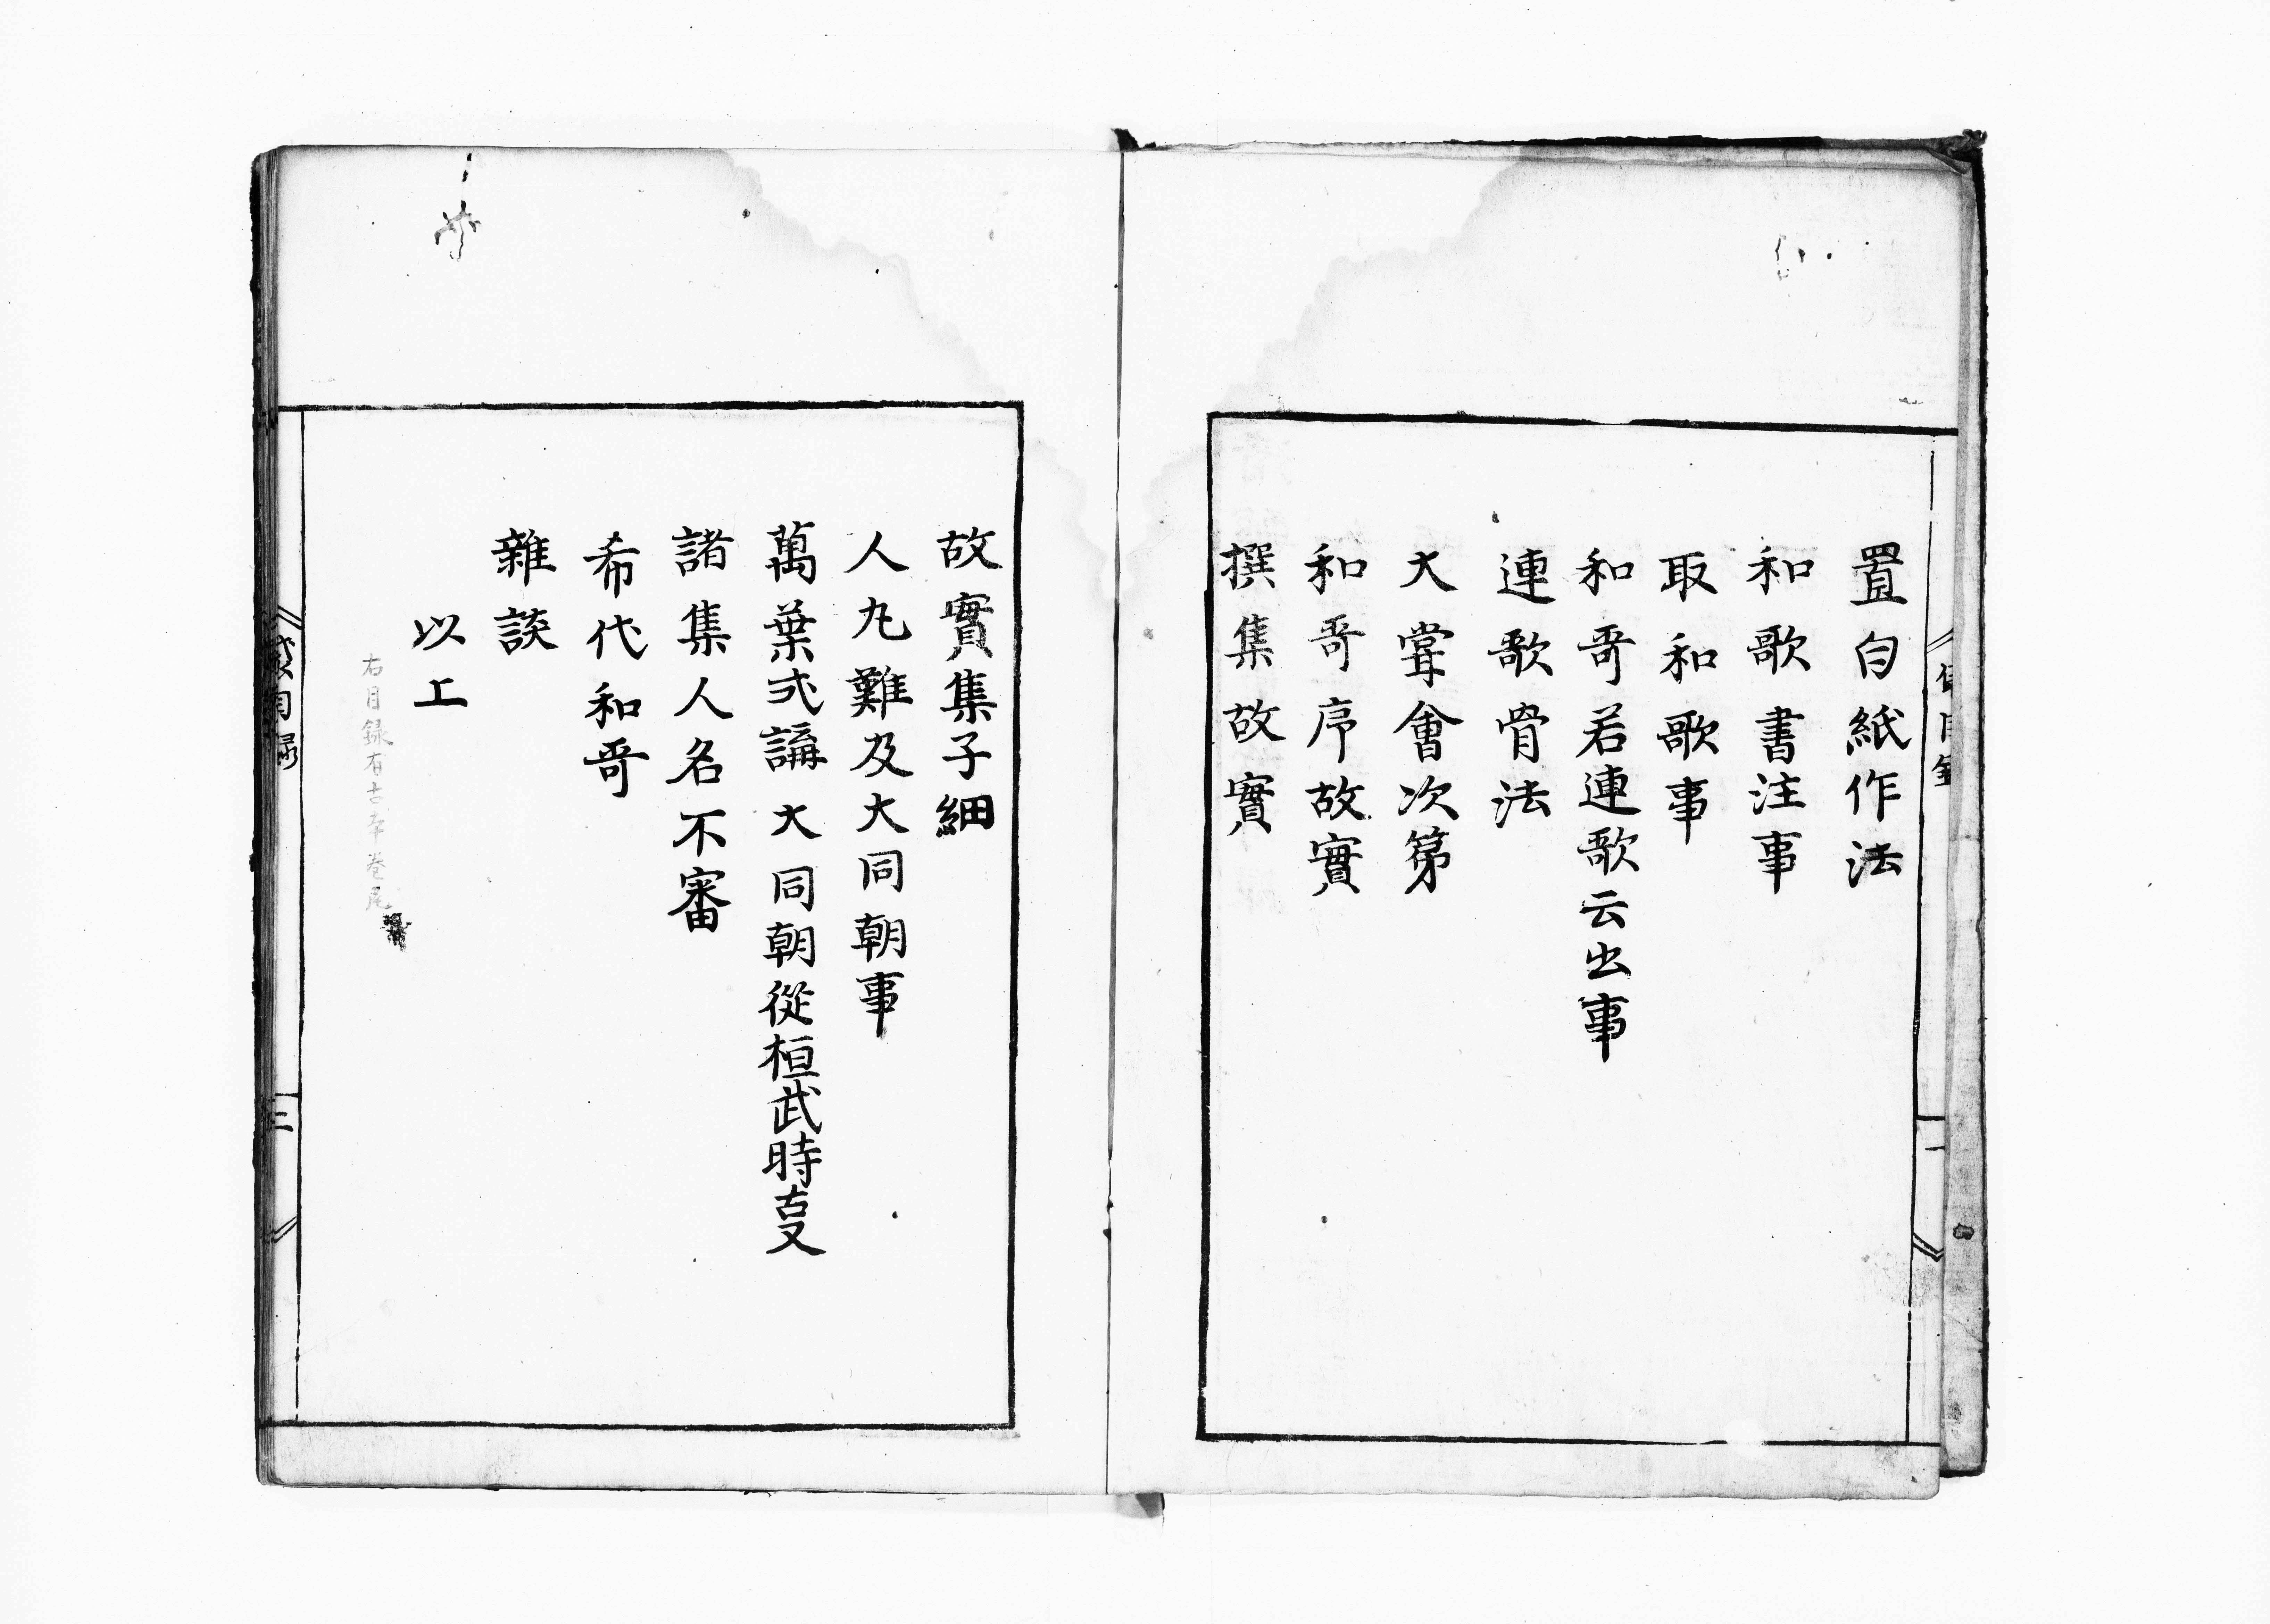 置白紙作法
和歌書注事
取和歌事
和哥若連歌云出事
連歌骨法
大甞會次第
和哥序故實
撰集故實
故實集子細
人丸難及大同朝事
萬葉弐講大同朝從桓武時
諸集人名不審
希代和哥
雜談
以上
右目録有古本巻尾
袋目録
二
目録
一